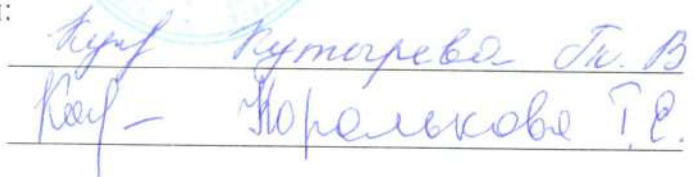 :
Кутырева Тк. В
Королькова Т.Е.